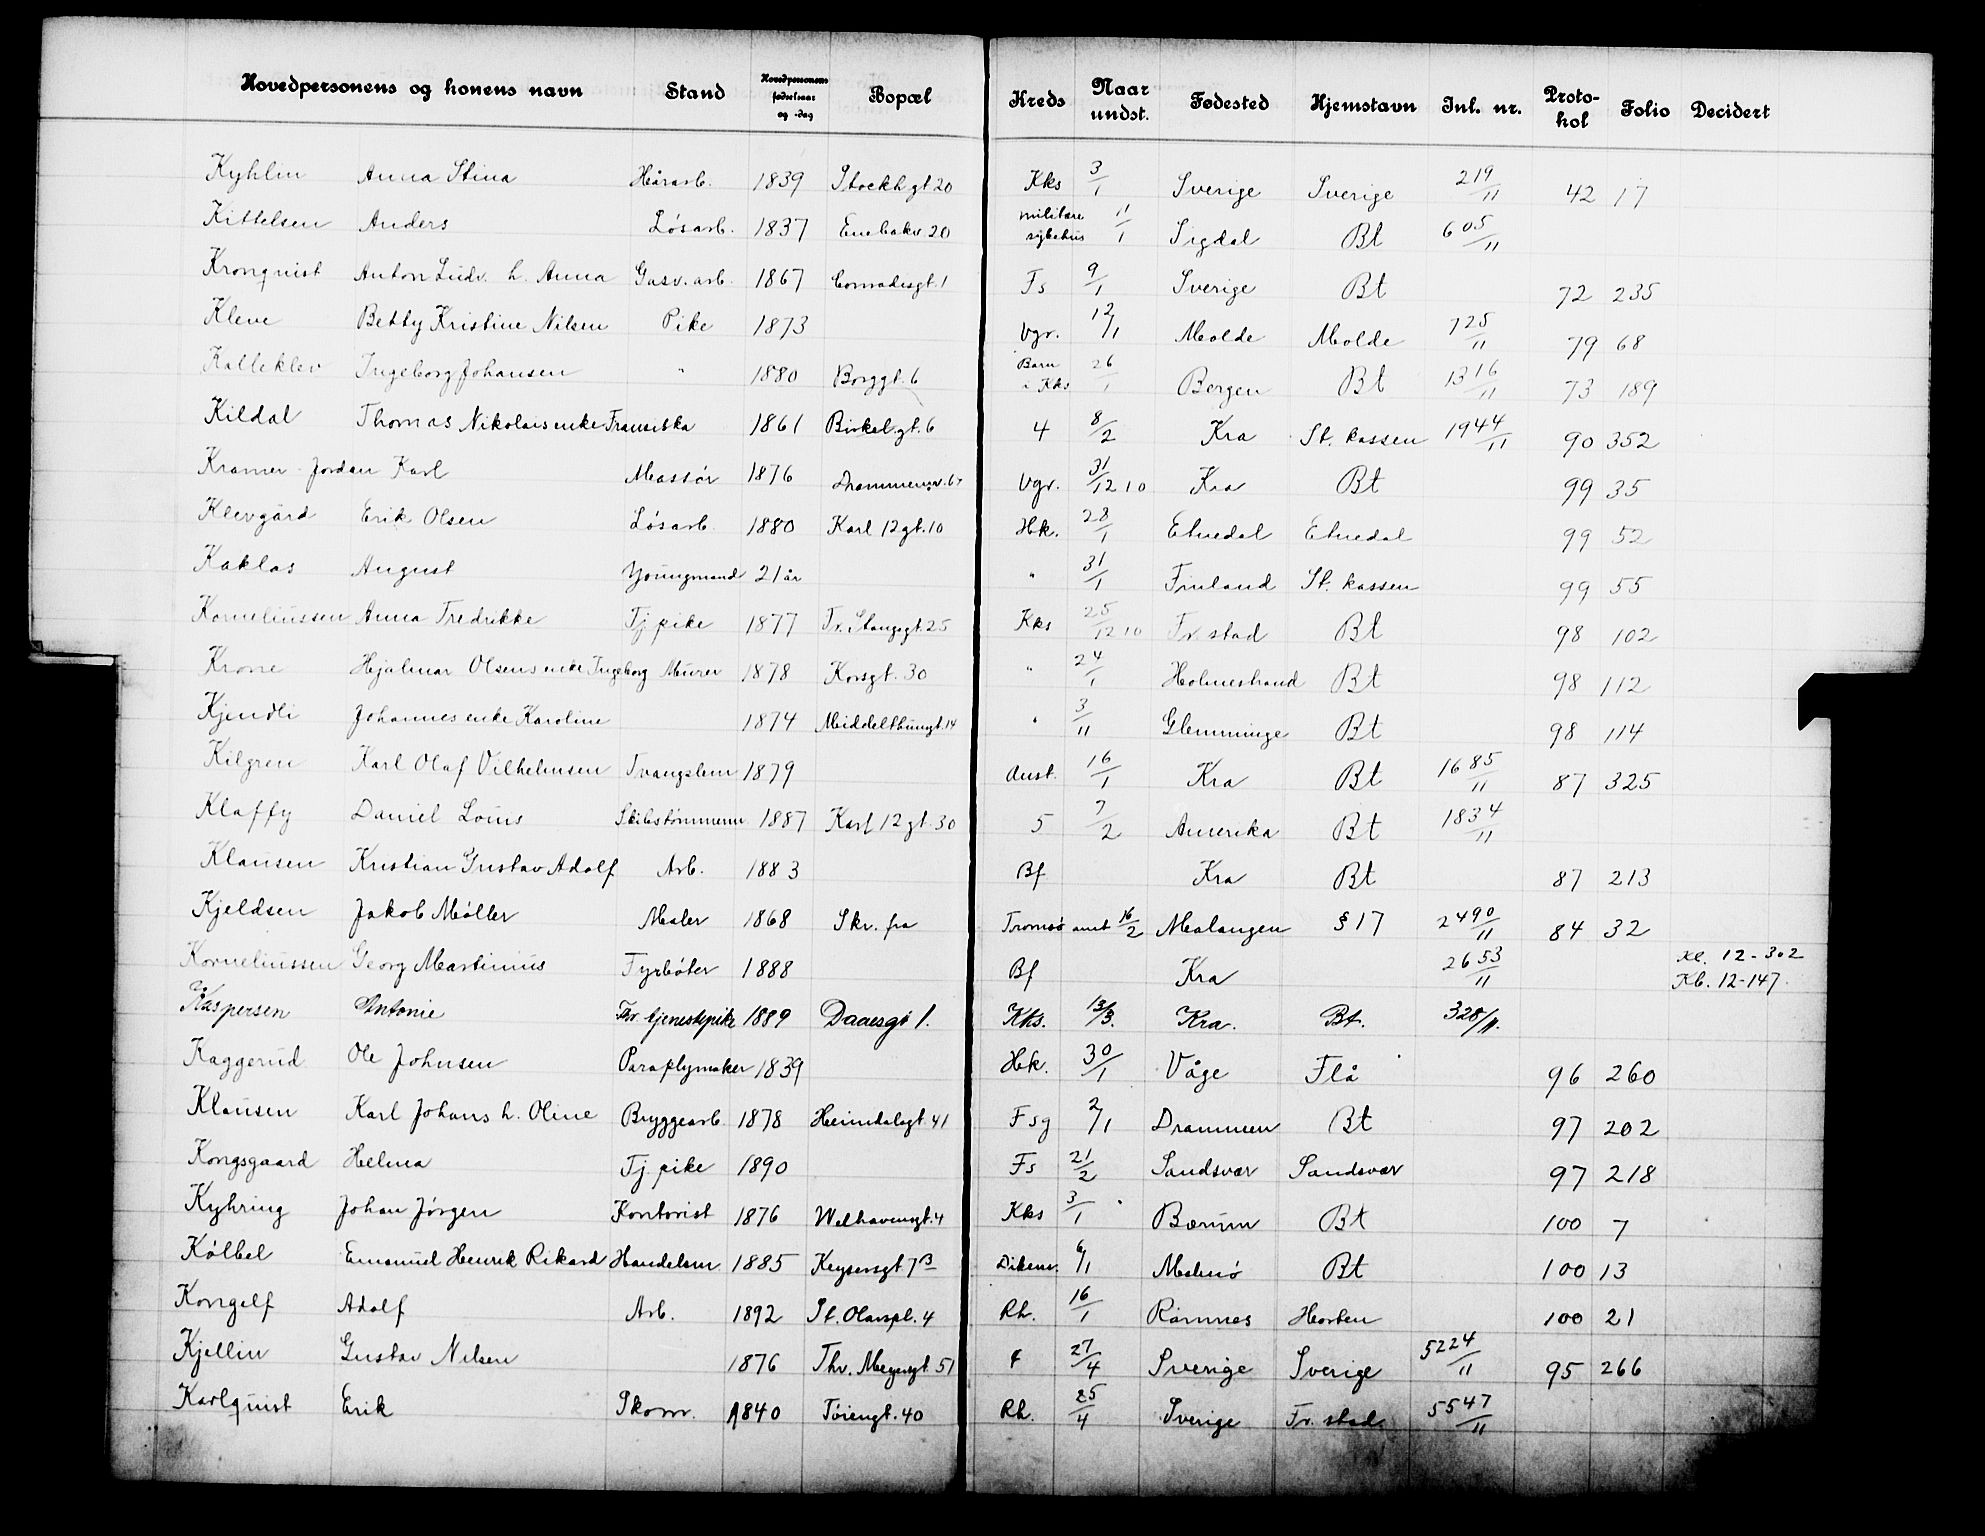 Hovedpersonens og konens navn Stand Hovedpersonens fødselsaar og -dag Bopæl Kreds Naar undst. Fødested Hjemstavn Inl. nr. Protokol Folio Decidert
Kyhlin Anna Stina Hårarb. 1839 Stockh.gt 20 Kks 3/1 Sverige Sverige 219/11 42 17
Kittelsen Anders Løsarb. 1837 Enebakv. 20 militære sykehus 11/1 Sigdal Bt 605/11
Kronquist Anton Ludv. h. Anna Gasv. arb. 1867 Conradisgt. 1 Fs 9/1 Sverige Bt 72 235
Kleve Betty Kristine Nilsen Pike 1873 Vgr. 12/1 Molde Molde 725/11 79 68
Kalleklev Ingeborg Johansen " 1880 Borggt. 6 Barn i Kks 26/1 Bergen Bt 1316/11 73 189
Kildal Thomas Nikolais enke Fransiska 1861 Birkel.gt. 6 4 8/2 Kra St. kassen 1944/11 90 352
Kramer-Jordan Karl Massør 1876 Drammensv. 6 Vgr. 31/12 10 Kra Bt 99 35
Klevgård Erik Olsen Løsarb. 1880 Karl 12 gt. 10 Hk. 28/1 Etnedal Etnedal 99 52
Kaklas August Youngmand 21 år " 31/1 Finland St. kassen 99 55
Korneliussen Anna Fredrikke Tj. pike 1877 Fr. Stangsgt. 25 Kks 25/12 10 Fr. stad Bt 98 102
Krone Hjalmar Olsens enke Ingeborg Murer 1878 Korsgt. 30 " 24/1 Holmestrand Bt 98 112
Kjendli Johannes enke Karoline 1874 Middelthunsgt. 14 " 3/11 Glemminge Bt 98 114
Kilgren Karl Olaf Vilhelmsen Tvangslem 1879 Anst. 16/1 Kra Bt 1685/11 87 325
Klaffy Daniel Louis Skibstømmerm. 1887 Karl 12 gt. 30 5 7/2 Amerika Bt 1834/11
Klausen Kristian Gustav Adolf Arb. 1883 Bf Kra Bt 87 213
Kjeldsen Jakob Møller Maler 1868 Skr. fra Tromsø amt 16/2 Malangen § 17 2490/11 84 32
Korneliussen Georg Martinius Fyrbøter 1888 Bf Kra 2653/11 Kl. 12-302
Kb. 12-147
Kaspersen Antonie Fhv. tjenestepike 1889 Daaesgt 1. Kks. 13/3. Kra. Bt. 328/11.
Kaggerud Ole Johnsen Paraplymaker 1839 Hk. 30/1 Våge Flå 96 260
Klausen Karl Johans h. Oline Bryggearb. 1878 Heimdalsgt. 41 Fsg 2/1 Drammen Bt 97 202
Kongsgaard Helma Tj. pike 1890 Fs 21/2 Sandsvær Sandsvær 97 218
Kyhring Johan Jörgen Kontorist 1876 Welhavensgt. 4 Kks 3/1 Bærum Bt 100 7
Kölbel Emanuel Henrik Rikard Handelsm. 1885 Keysersgt 7 B Dikem. 6/1 Malmø Bt 100 13
Kongelf Adolf Arb. 1892 St. Olavspl. 4 Rh. 16/1 Ramnes Horten 100 21
Kjellin Gustav Nilsen 1876 Thv. Meyersgt. 51 F 27/4 Sverige Sverige 5224/11 95 266
Karlquist Erik Skom. 1840 Tøiengt. 40 Rh. 25/4 Sverige Fr. stad 5547/11